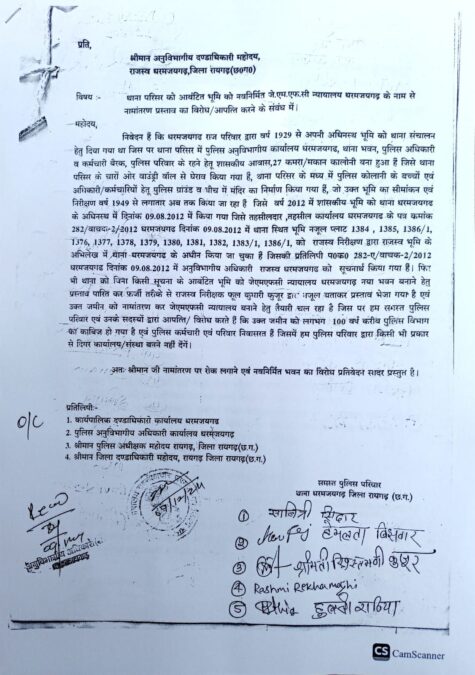 प्रति,
श्रीमान अनुविभागीय दण्डाधिकारी महोदय,
राजस्व धरमजयगढ़,जिला रायगढ़(छ०ग०)
विषय :- थाना परिसर को आवंटित भूमि को नवनिर्मित जे.एम.एफ.सी न्यायालय धरमजयगढ़ के नाम से
नामांतरण प्रस्ताव का विरोध/आपत्ति करने के संबंध में।
महोदय,
निवेदन हैं कि धरमजयगढ़ राज परिवार द्वारा वर्ष 1929 से अपनी अधिनस्थ भूमि को थाना संचालन
हेतु दिया गया था जिस पर थाना परिसर में पुलिस अनुविभागीय कार्यालय, थाना भवन, पुलिस अधिकारी
व कर्मचारी बैरक, पुलिस परिवार के रहने हेतु शासकीय आवास,27 कमरा/मकान कालोनी बना हुआ है जिसे थाना
परिसर के चारों ओर बाउंड्री वॉल से घेराव किया गया हैं, थाना परिसर के मध्य में पुलिस कोलानी के बच्चों एवं
अधिकारी/कर्मचारियों हेतु पुलिस ग्रांउड व बीच में मंदिर का निर्माण किया गया हैं, जो उक्त भूमि का सीमांकन एवं
निरीक्षण वर्ष 1949 से लगातार अब तक किया जा रहा हैं जिसे वर्ष 2012 में शासकीय भूमि को थाना धरमजयगढ़
के अधिनस्थ में दिनांक 09.08.2012 में किया गया जिसे तहसीलदार ,तहसील कार्यालय धरमजयगढ़ के पत्र कमांक
282/वाचक-2/2012 धरमजयगढ़ दिनांक 09.08.2012 में थाना स्थित भूमि नजूल प्लाट 1384 , 1385, 1386/1,
1376, 1377, 1378, 1379, 1380, 1381, 1382, 1383/1, 1386/1, को राजस्व निरीक्षण द्वारा राजस्व भूमि के
अभिलेख में थाना धरमजयगढ़ के अधीन किया जा चुका हैं जिसकी प्रतिलिपी प०क० 282-ए/वाचक-2/2012
धरमजयगढ़ दिनांक 09.08.2012 में अनुविभागीय अधिकारी राजस्व धरमजयगढ़ को सूचनार्थ किया गया है। फिर
भी थाना को बिना किसी सूचना के आवंटित भूमि को जेएमएफसी न्यायालय नया भवन बनाने हेतु
प्रस्ताव पारित कर फर्जी तरीके से राजस्व निरीक्षक फूल कुमारी कुजूर द्वारा नजूल बताकर प्रस्ताव भेजा गया है एवं
उक्त जमीन को नामांतरण कर जेएमएफसी न्यायालय बनाने हेतु तैयारी चल रहा है जिस पर हम समस्त पुलिस
परिवार एवं उनके सदस्यों द्वारा आपत्ति/ विरोध करते हैं कि उक्त जमीन को लगभग 100 वर्ष करीब पुलिस विभाग
का काबिज हो गया है एवं पुलिस कर्मचारी एवं परिवार निवासरत हैं जिसमें हम पुलिस परिवार द्वारा किसी भी प्रकार
से दिगर कार्यालय/संस्था बनने नहीं देंगें।
अतः श्रीमान जी नामांतरण पर रोक लगाने एवं नवनिर्मित भवन का विरोध प्रतिवेदन सादर प्रस्तुत है।
प्रतिलिपी:-
1. कार्यपालिक दण्डाधिकारी कार्यालय धरमजयगढ़
2. पुलिस अनुविभागीय अधिकारी कार्यालय धरमजयगढ़
3. श्रीमान पुलिस अधीक्षक महोदय रायगढ़, जिला रायगढ़(छ.ग.)
4. श्रीमान जिला दण्डाधिकारी महोदय, रायगढ़ जिला रायगढ़(छ.ग.)
O/C
समस्त पुलिस परिवार
थाना धरमजयगढ़ जिला रायगढ़ (छ.ग.)
① सावित्री सिदार
② हेमलता बिसवार
③ श्रीमति
④ Rashmi Rekha
⑤ राठिया
CS CamScanner